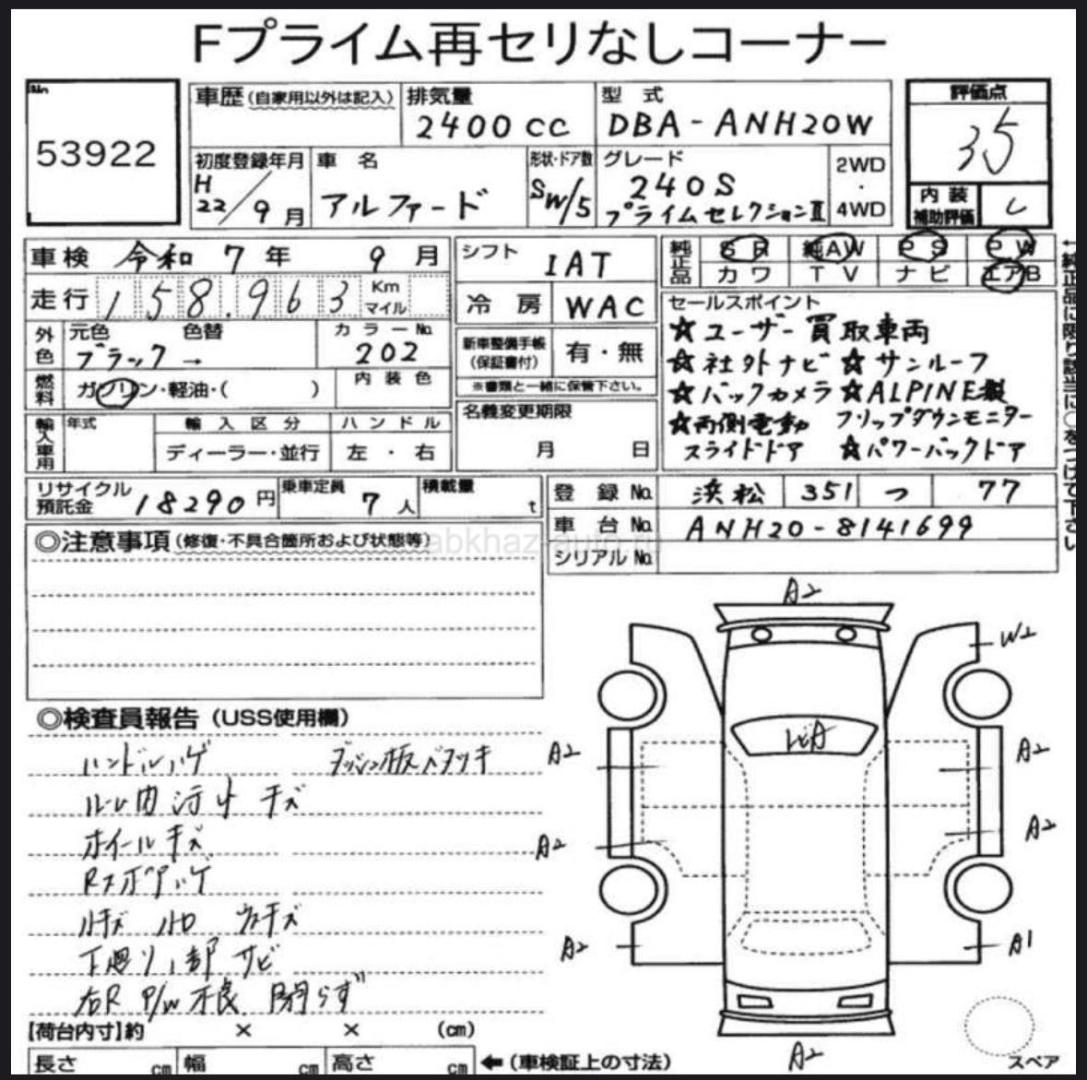 Fプライム再セリなしコーナー
No.
53922
車歴(自家用以外は記入)
排気量
2400 cc
型 式
DBA-ANH20W
評価点
3.5
初度登録年月
H
22/9月
車 名
アルファード
形状・ドア数
SW/5
グレード
240S
プライムセレクションⅡ
2WD
・
4WD
内 装
補助評価
C
車検 令和 7 年 9 月
走行 158,963 Km
マイル
外色
元色 色替
ブラック →
カラーNo.
202
燃料
ガソリン・軽油・( )
内装色
輸入車用
年式
輸入区分
ディーラー・並行
ハンドル
左・右
シフト
IAT
冷 房
WAC
新車整備手帳
(保証書付)
有・無
※書類と一緒に保管下さい。
名義変更期限
月 日
純正品
SR 純AW PS PW
カワ TV ナビ エアB
セールスポイント
☆ユーザー買取車両
☆社外ナビ ☆サンルーフ
☆バックカメラ ☆ALPINE製
☆両側電動 フリップダウンモニター
スライドドア ☆パワーバックドア
←純正品に限り該当に○をつけて下さい
リサイクル
預託金
18290 円
乗車定員
7 人
積載量
t
登 録 No. 浜松 351 つ 77
車 台 No. ANH20-8141699
シリアル No.
◎注意事項(修復・不具合箇所および状態等)
abkhaz-auto.ru
◎検査員報告(USS使用欄)
ハンドルハゲ ダッシュ板ベタツキ
ルーム内汚レ キズ
ホイールキズ
Rスポアゲ
下廻り一部サビ
右R P/W不良 閉らず
A2
W2
A2
A2
A2
A2
A2
A1
A2
【荷台内寸】約 × × (cm)
長さ cm 幅 cm 高さ cm ←(車検証上の寸法)
スペア